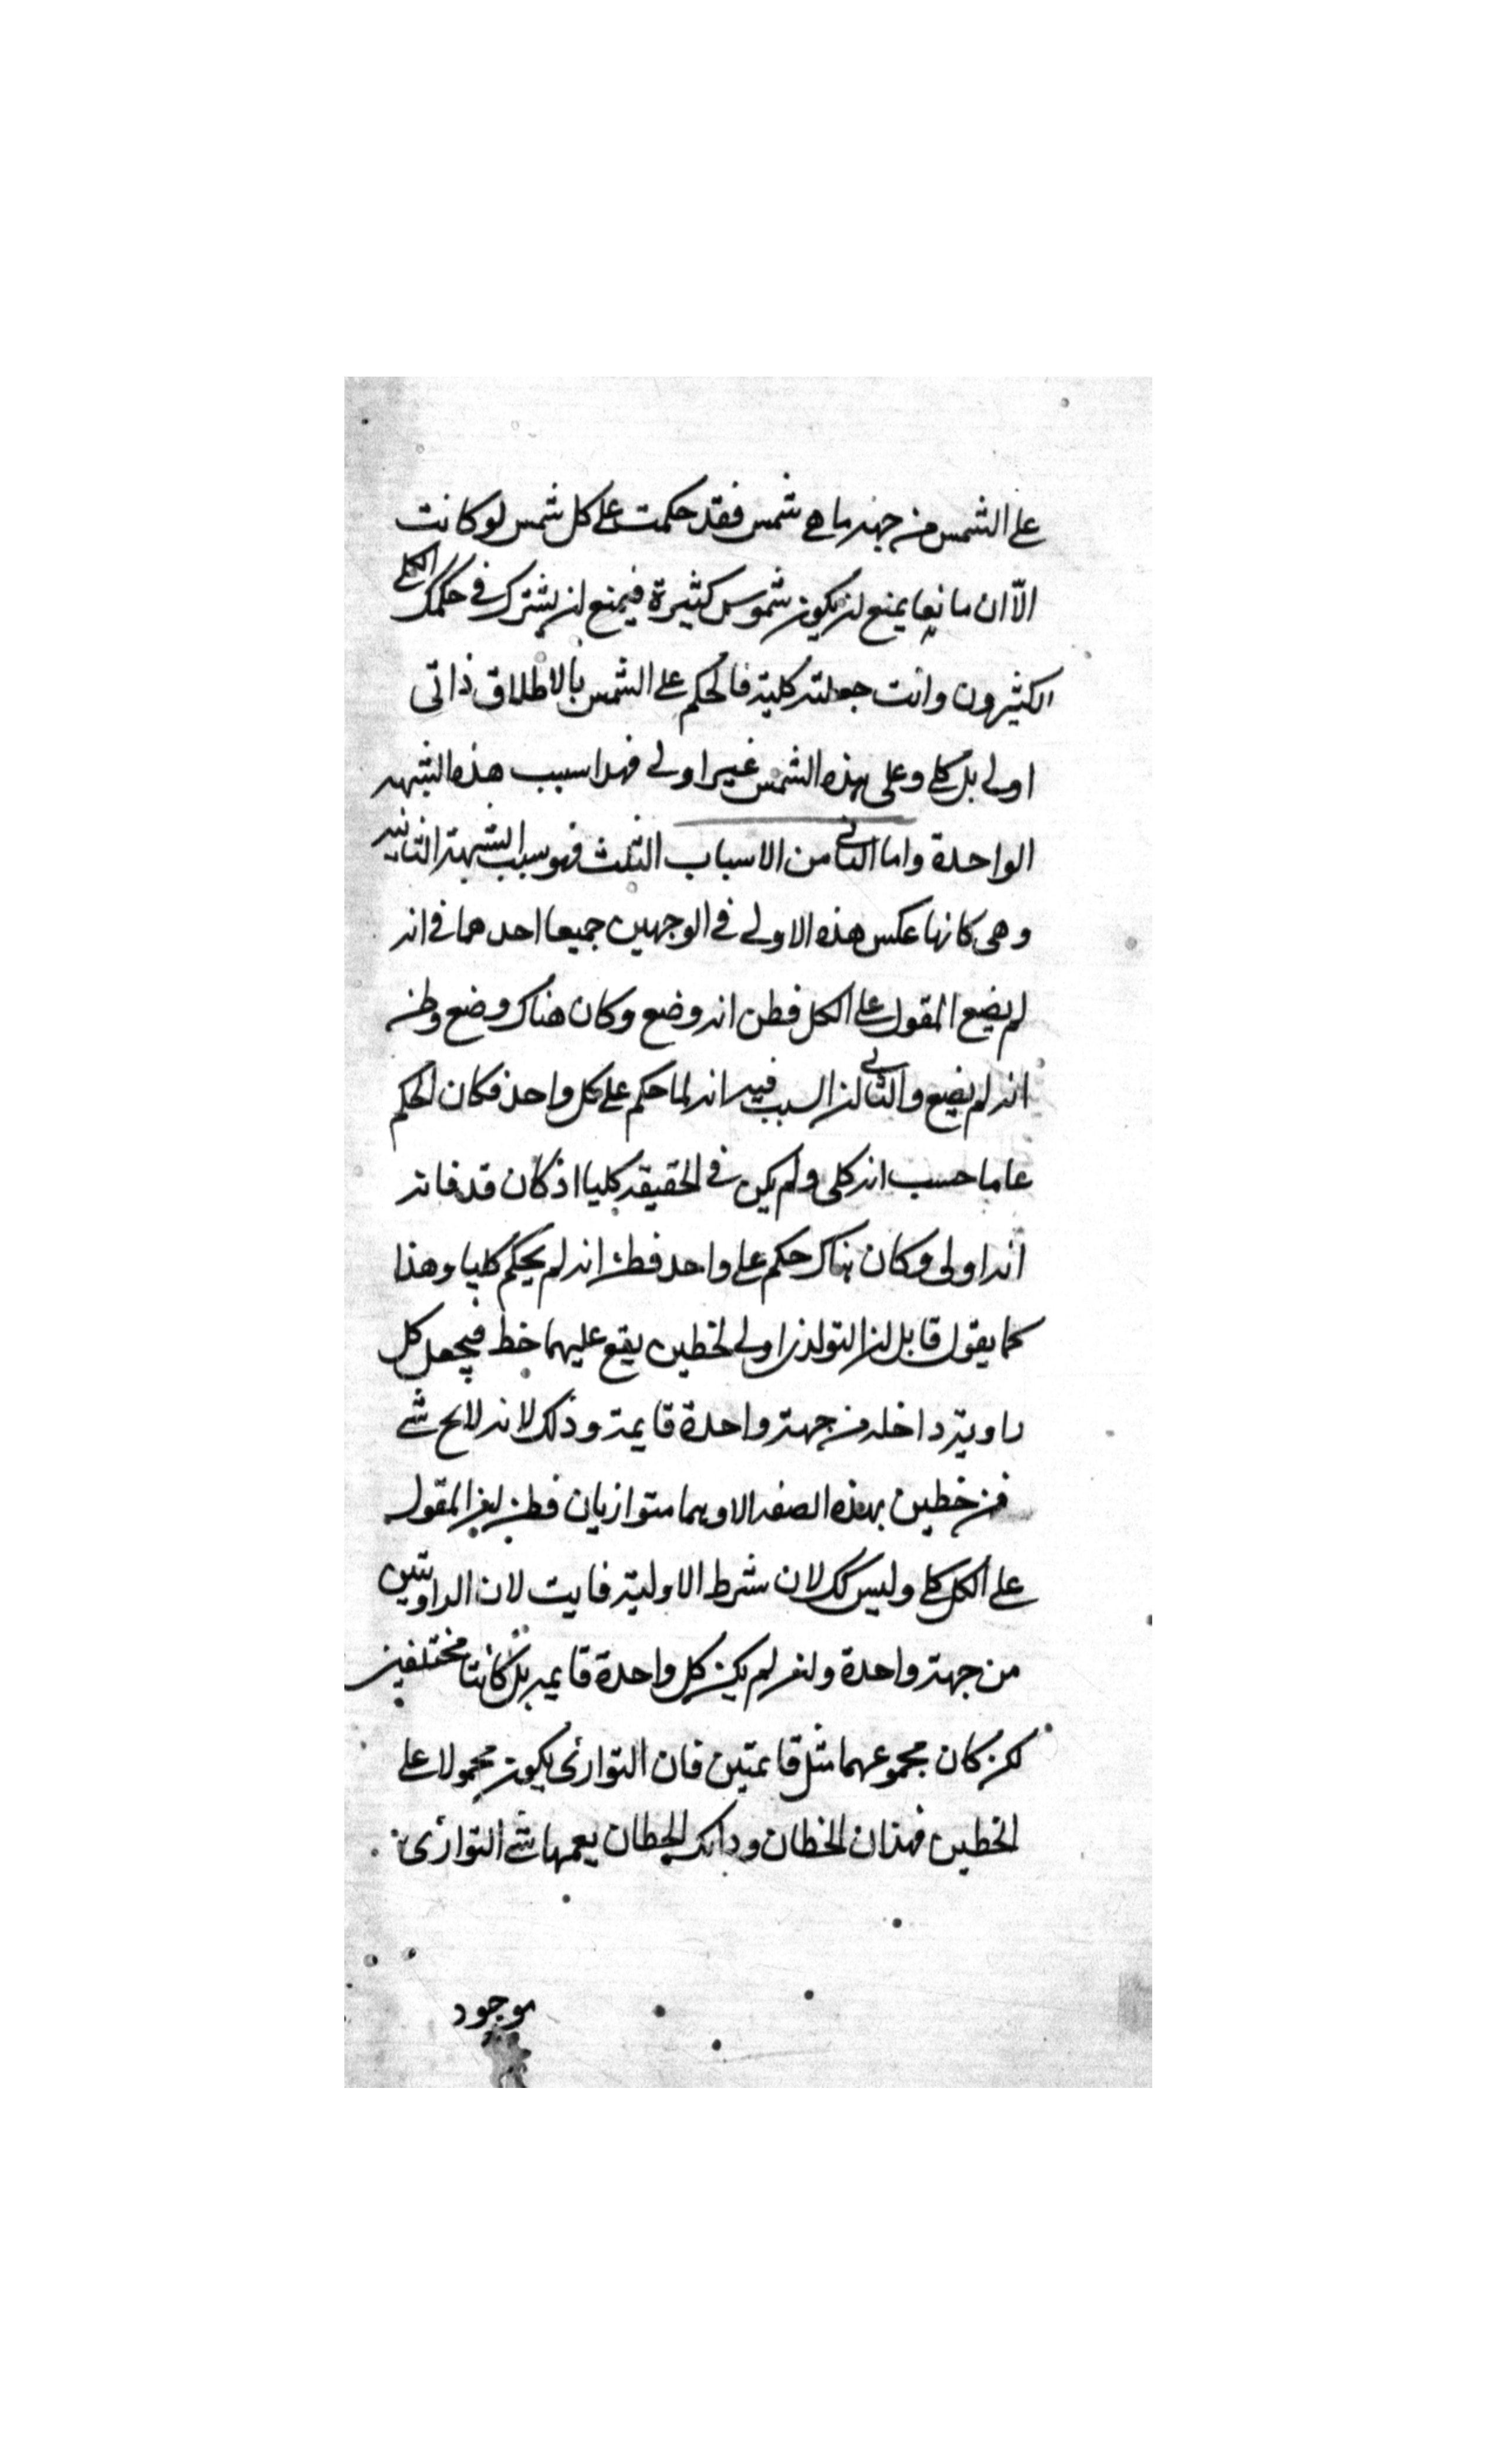 على الشمس من جهة ما هي شمس فقد حكمت على كل شمس لو كانت
الّا ان مانعا يمنع ان يكون شموس كثيرة فيمنع ان يشترك في حكمك الكلي
الكثيرون وانت جعلته كلية فالحكم على الشمس بالاطلاق ذاتى
اولى بل كلى وعلى هذه الشمس غير اولى فهذا سبب هذه الشبهه
الواحدة واما الثانى من الاسباب الثلث فهو سبب الشبهة الثانيه
وهى كانها عكس هذه الاولى في الوجهين جميعا احدهما في انه
لم يضع المقول على الكل فظن انه وضع وكان هناك وضع وظن
انه لم يضع والثانى ان السبب فيه انه لما حكم على كل واحد فكان الحكم
عاما حسب انه كلى ولم يكن في الحقيقه كليا اذ كان قد فاته
انه اولى وكان هناك حكم على واحد فظن انه لم يحكم كليا وهذا
كما يقول قايل ان التوازى اولى لخطين يقع عليهما خط فيجعل كل
راوية داخله من جهة واحدة قايمة وذلك لانه لا شى
من خطين بهذه الصفه الا وهما متوازيان فظن ان المقول
على الكل كلى وليس كك لان شرط الاولية فايت لان الراويتين
من جهة واحدة وان لم يكن كل واحدة قايمه بل كانتا مختلفين
لكن كان مجموعهما مثل قايمتين فان التوازى يكون محمولا على
الخطين فهذان الخطان وذانك الخطان يعمهما شى التوازى
موجود